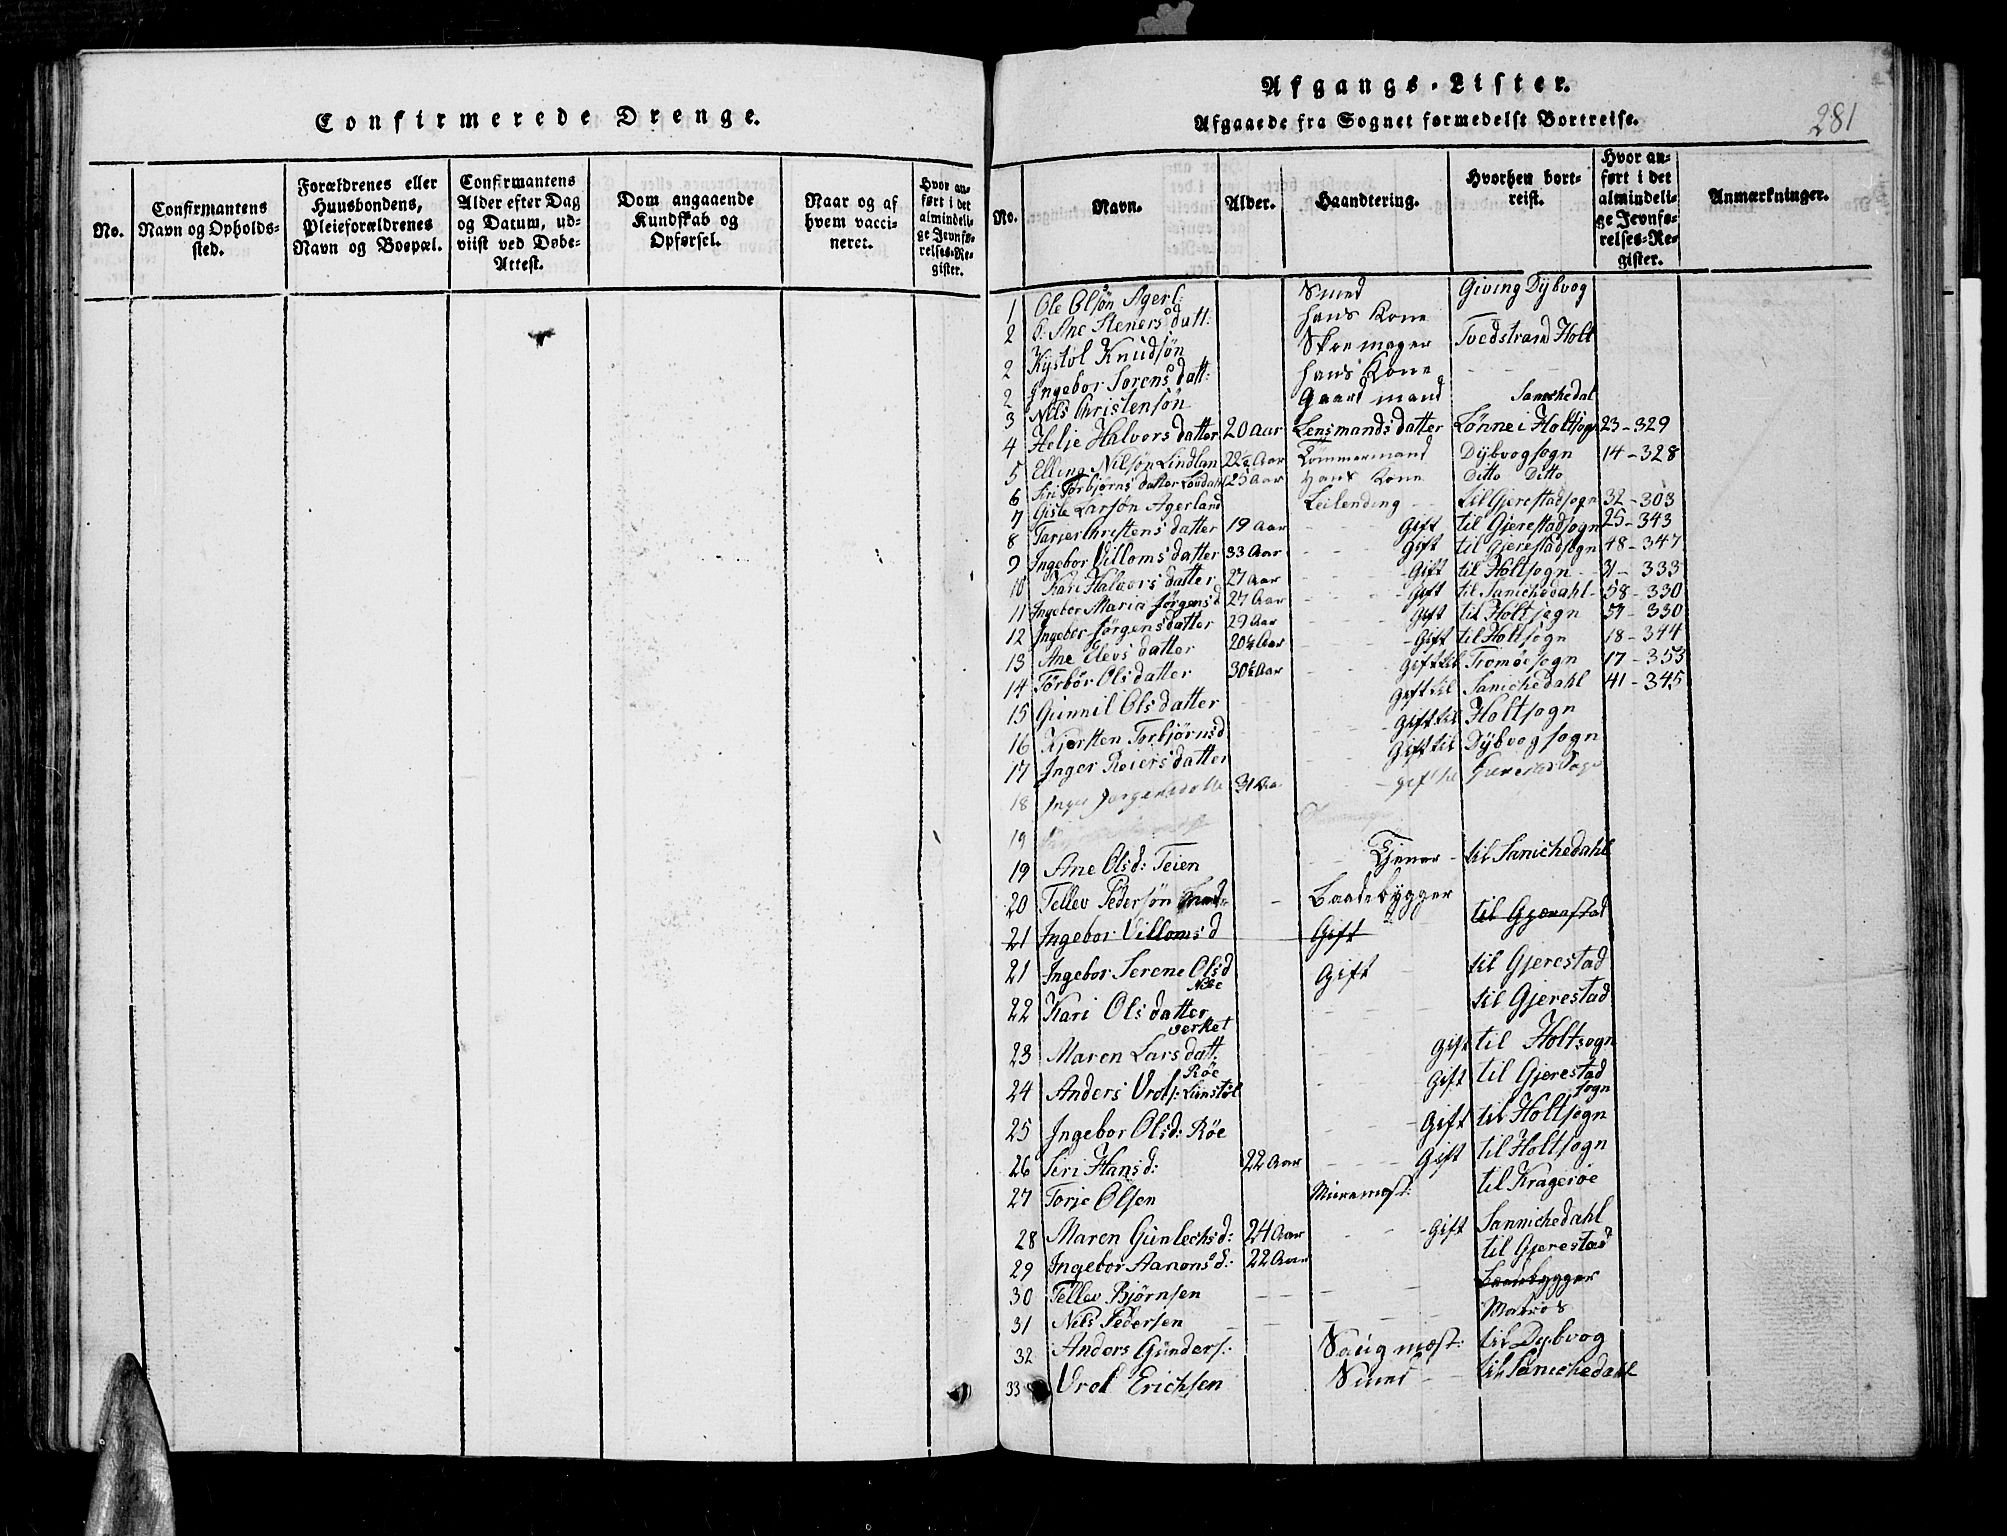 Confirmerede Drenge.
No.
Confirmantens
Navn og Opholds-
sted.
Forældrenes eller
Huusbondens,
Pleieforældrenes
Navn og Boepæl.
Confirmantens
Alder efter Dag
og Datum, ud-
viist ved Døbe-
Attest.
Dom angaaende
Kundskab og
Opførsel.
Naar og af
hvem vacci-
neret.
Hvor an-
ført i det
almindeli-
ge Jevnfø-
relses-Re-
gister.
281
Afgangs-Lister.
Afgaaede fra Sognet formedelst Bortreise.
No.
Navn.
Alder.
Haandtering.
Hvorhen bort-
reist.
Hvor an-
ført i det
almindeli-
ge Jevnfø-
relses-Re-
gister.
Anmærkninger.
1 Ole Olsøn Agerl: Smed Giving Dybvog
2 Ane Steners datt: hans Kone
2 Kystol Knudsøn Skremager Tvedstrand Holt
2 Ingebor Sørens datt: hans Kone
3 Nils Christensøn Gaardmand Sanichedal
4 Helje Halvors datter 20 Aar Lensmands datter Lønne i Holtsogn 23-329
5 Elling Nilsøn Lindlan 22½ Aar Tømmermand Dybvogsogn 14-328
6 Siri Torbjørns datter Løvdahl 25 Aar Hans Kone Ditto Ditto
7 Gisle Larsøn Agerland Leilending til Gjerestadsogn 32-303
8 Tarjer Christens datter 19 Aar Gift til Gjerestadsogn 25-343
9 Ingebor Villoms datter 33 Aar Gift til Gjerestadsogn 48-347
10 Kari Halvors datter 27 Aar Gift til Holtsogn 31-333
11 Ingebor Maria Jørgens d 27 Aar Gift til Sanichedahl 58-330
12 Ingebor Jørgens datter 29 Aar Gift til Holtsogn 57-330
13 Ane Elevs datter 20½ Aar Gift til Holtsogn 18-344
14 Torbør Ols datter 30½ Aar Gift til Tromøesogn 17-353
15 Gunnil Ols datter Gift til Sanichedahl 41-345
16 Kjersten Torbjørnsd Gift til Holtsogn
17 Inger Reiers datter Gift til Dybvogsogn
18 Inger Jørgensdatter 31 Aar gift til Gjerestad Sogn
19
19 Ane Olsd: Teien Tjener til Sanichedahl
20 Tellev Pedersøn Baadebygger
21 Ingebor Villoms d Gift til Gjerestad
21 Ingebor Serene Olsd Gift til Gjerestad
22 Kari Olsdatter til Gjerestad
Verket
23 Maren Lars datt. Gift til Holtsogn
Røe
24 Anders Vrols: Limstøl Gift til Gjerestad
sogn
25 Ingebor Olsd: Røe Gift til Holtsogn
26 Siri Hansd: 22 Aar Gift til Holtsogn
27 Torje Olsen Muremest: til Kragerøe
28 Maren Gunlechsd: 24 Aar Gift Sannichedahl
29 Ingebor Aanonsd: 22 Aar til Gjerestad
30 Tellev Bjørnsen Baadbygger
31 Nils Pedersen Matros
32 Anders Gunders: Saugmest: til Dybvog
33 Vrol Erichsen Smed til Sanichedahl